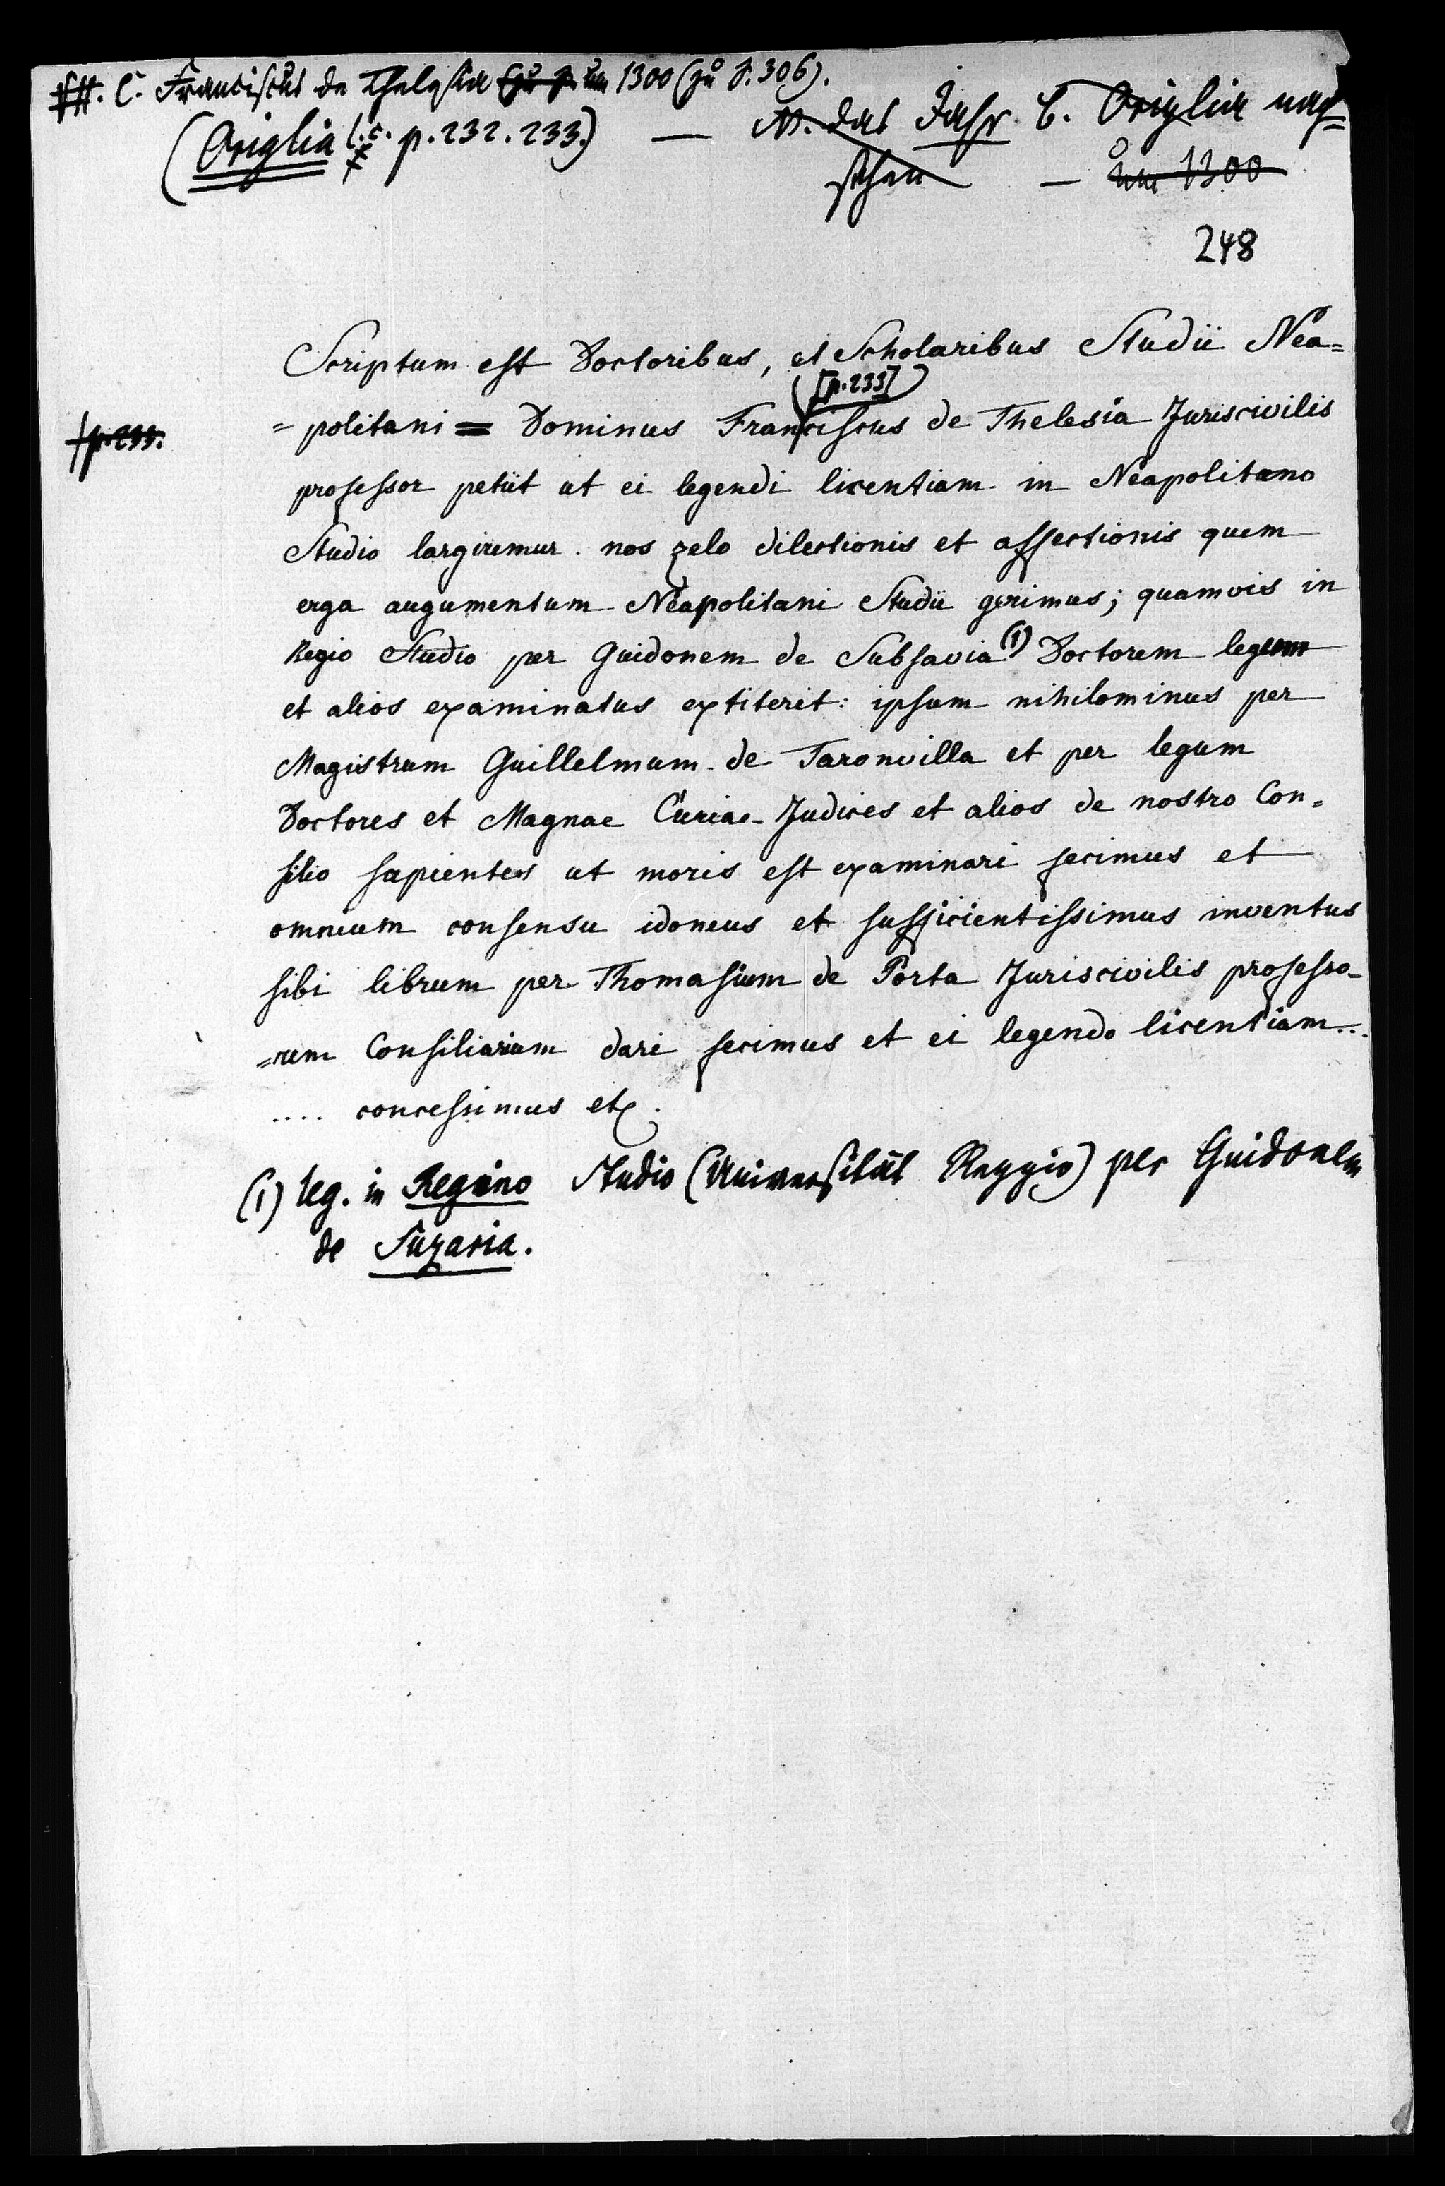 C. Franciscus de Thelesia um 1300 (zu S. 306).
(Origlia l. c. p. 232. 233.) — N. das Jahr b. Origlia nach=
sehen — um 1300
248
Scriptum est Doctoribus, et Scholaribus Studii Nea=
[p. 233]
=politani = Dominus Franciscus de Thelesia Juriscivilis
p. 233.
professor petiit ut ei legendi licentiam in Neapolitano
Studio largiremur. nos zelo dilectionis et affectionis quem
erga augumentum Neapolitani Studii gerimus; quamvis in
Regio Studio per Guidonem de Subsavia (1) Doctorem legum
et alios examinatus extiterit: ipsum nihilominus per
Magistrum Guillelmum de Taronvilla et per legum
Doctores et Magnae Curiae Judices et alios de nostro Con=
silio sapientes ut moris est examinari fecimus et
omnium consensu idoneus et sufficientissimus inventus
sibi librum per Thomasium de Porta Juriscivilis professo-
=rem Consiliarium dari fecimus et ei legendo licentiam..
.... concessimus etc.
(1) leg. in Regino Studio (Universität Reggio) per Guidonem
de Suzaria.